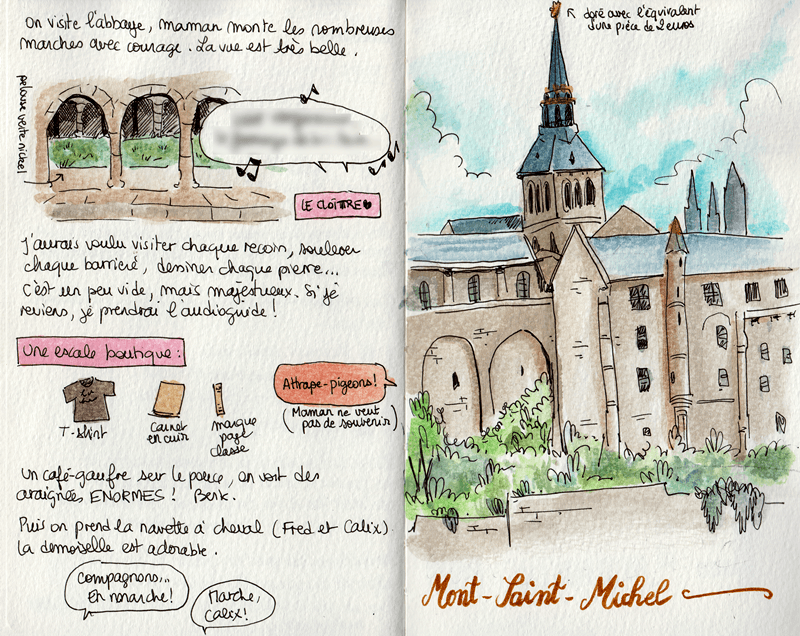 On visite l'abbaye, maman monte les nombreuses
marches avec courage. La vue est très belle.
pelouse verte nickel
LE CLOÎTRE
J'aurais voulu visiter chaque recoin, soulever
chaque barrière, dessiner chaque pierre...
C'est un peu vide, mais majestueux. Si je
reviens, je prendrai l'audioguide !
Une escale boutique :
T-shirt
Carnet
en cuir
marque
page
classe
Attrape-pigeons !
(Maman ne veut
pas de souvenir)
Un café-gaufre sur le pouce, on voit des
araignées ENORMES ! Berk.
Puis on prend la navette à cheval (Fred et Calix).
La demoiselle est adorable.
Compagnons...
En marche !
Marche,
Calix !
doré avec l'équivalent
d'une pièce de 2 euros
Mont-Saint-Michel